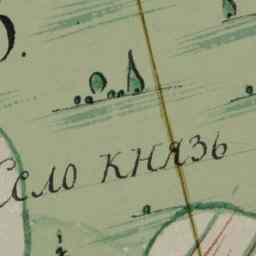 Село КНЯЗЬ